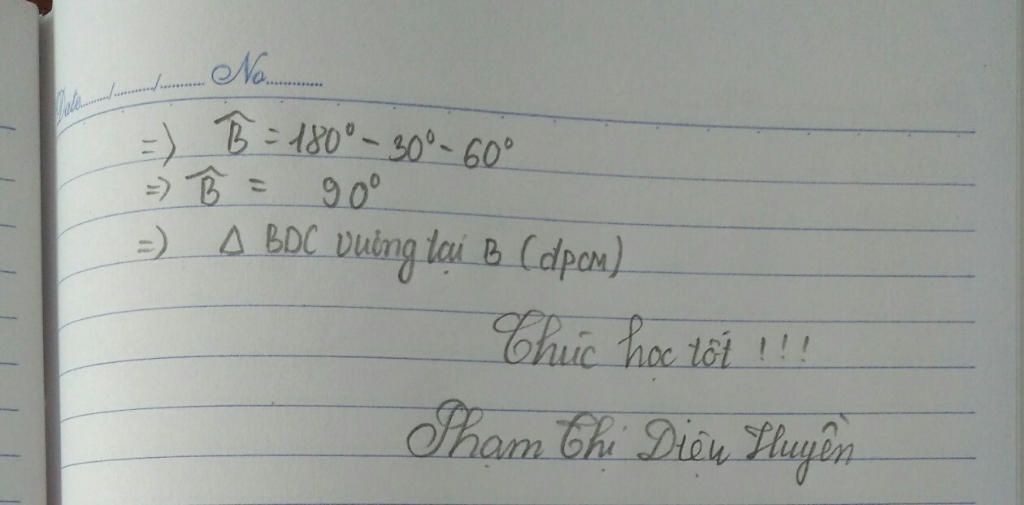 Date....../......../.......... No............
=> B̂ = 180° - 30° - 60°
=> B̂ = 90°
=> Δ BDC vuông tại B (đpcm)
Chúc học tốt !!!
Phạm Thị Diệu Huyền